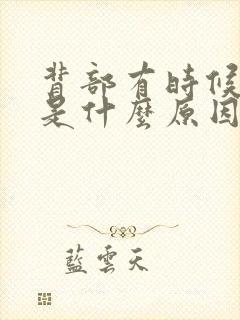 背部有時候
是什麼原因
藍雲天